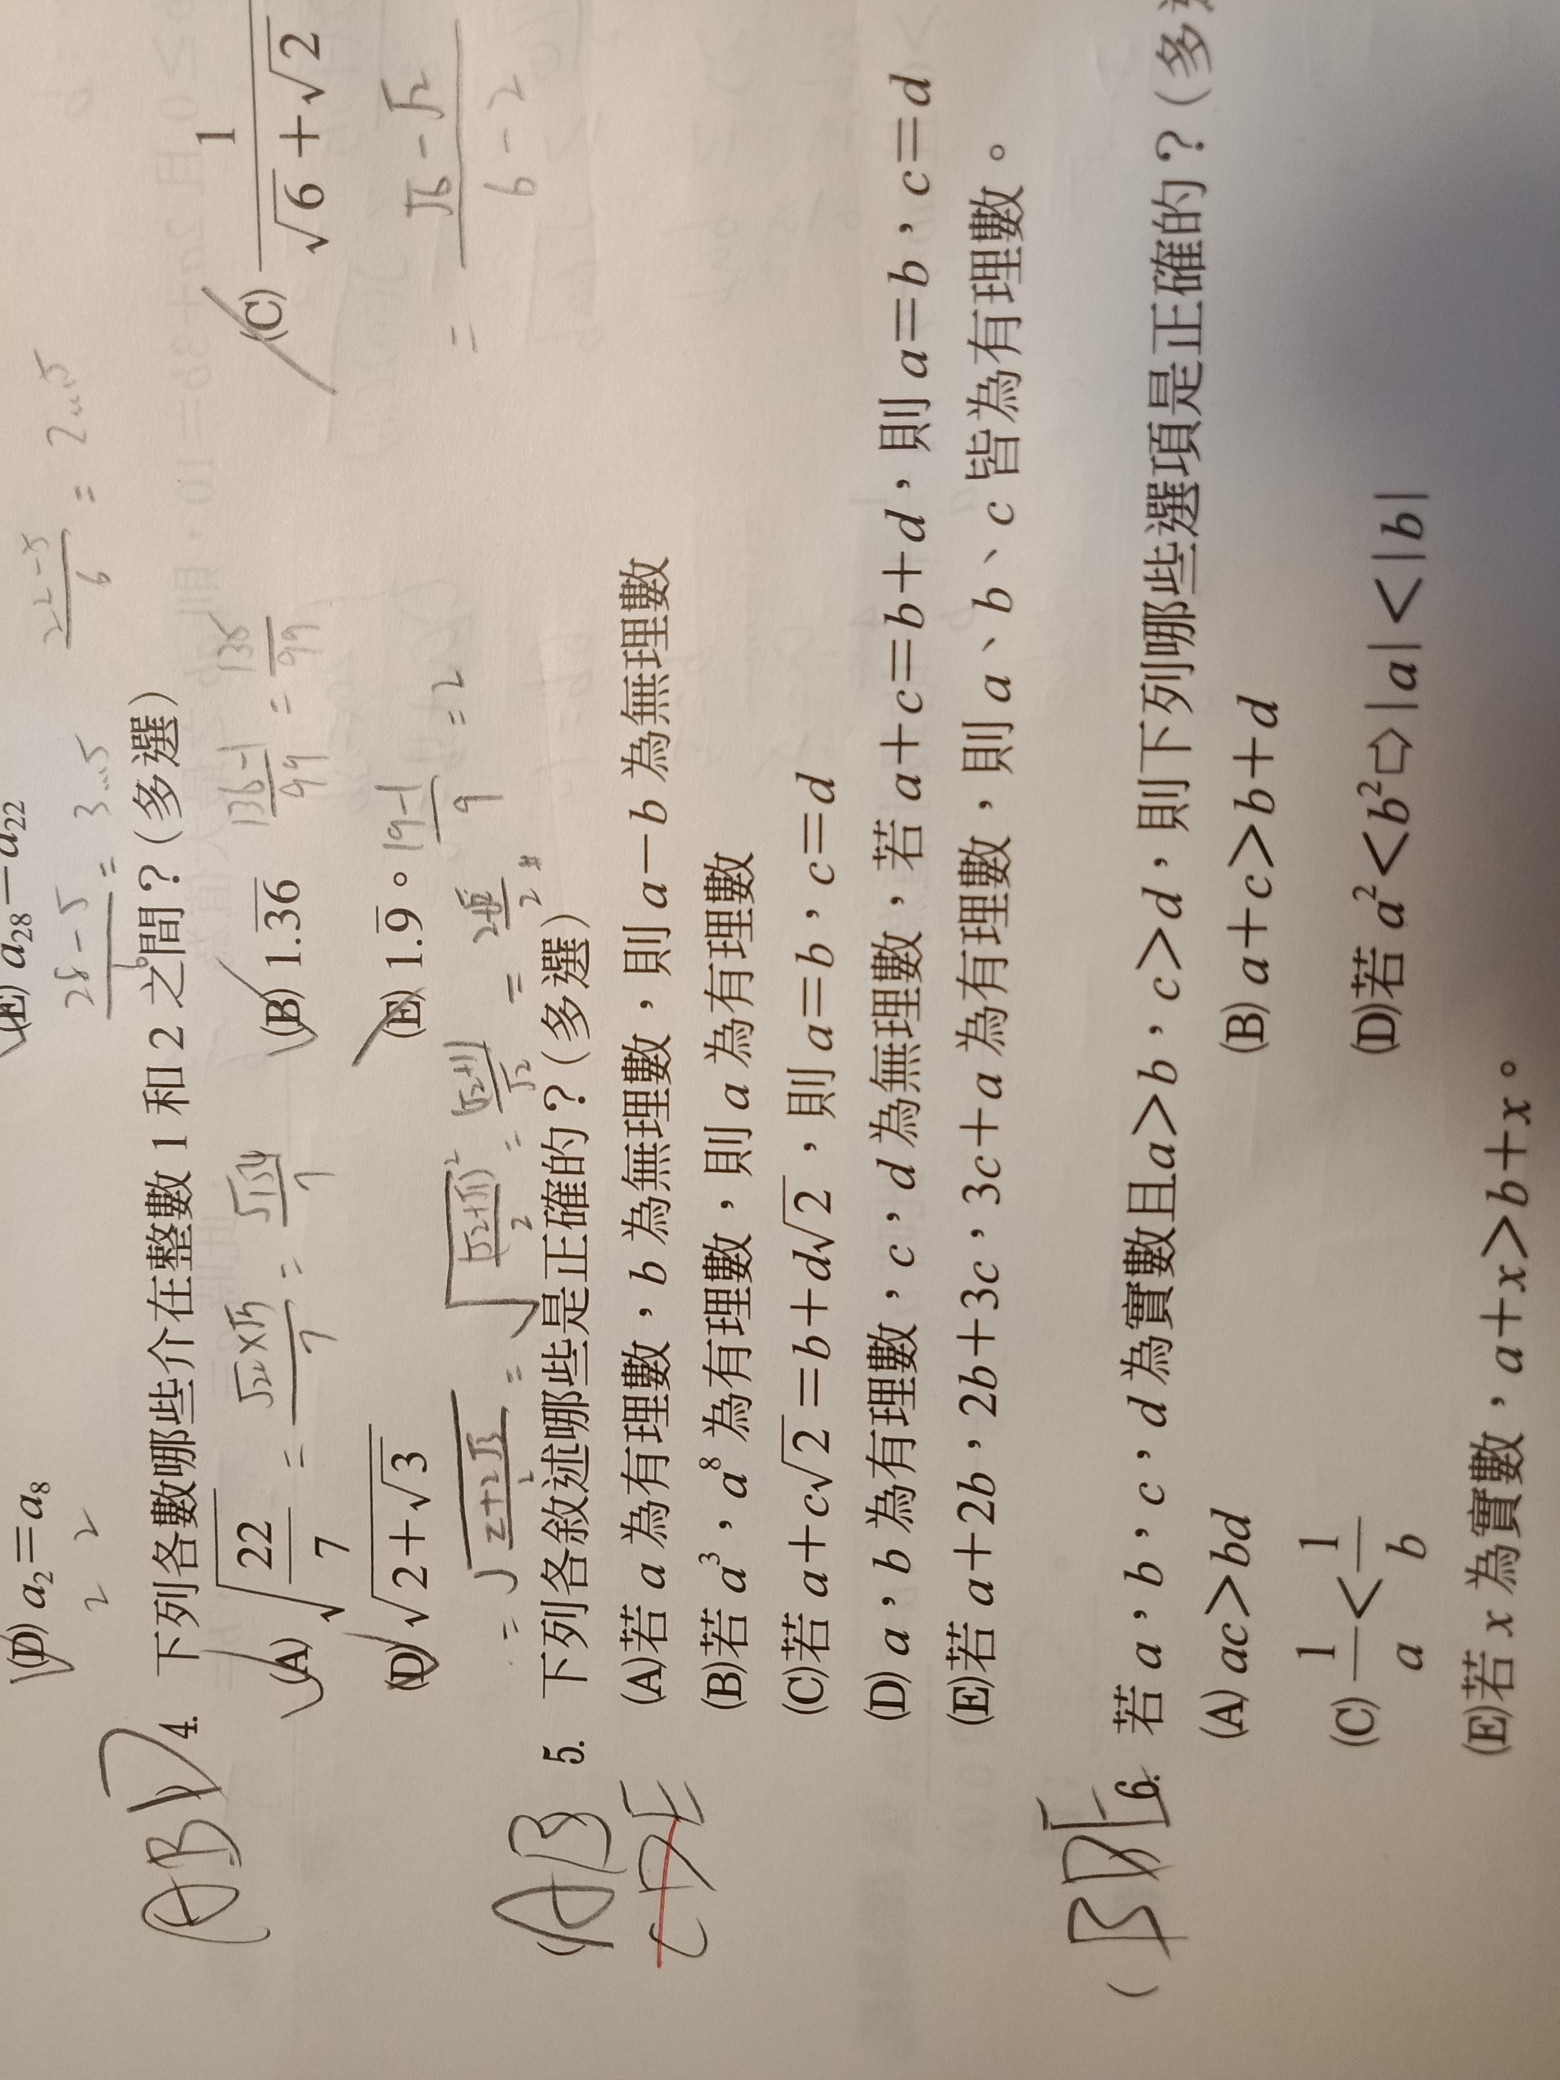 (D) a₂=a₈
2 2
(E) a₂₈-a₂₂
(ABD
4. 下列各數哪些介在整數 1 和 2 之間？(多選)
(A) √(22/7)
(B) 1.3̅6̅
136-1/99 = 135/99
(C) 1/(√6+√2)
= √6-√2/6-2
(D) √(2+√3)
(E) 1.9̅。
19-1/9 = 2
(AB
CDE
5. 下列各敘述哪些是正確的？(多選)
(A)若 a 為有理數，b 為無理數，則 a-b 為無理數
(B)若 a³，a⁸ 為有理數，則 a 為有理數
(C)若 a+c√2=b+d√2，則 a=b，c=d
(D) a，b 為有理數，c，d 為無理數，若 a+c=b+d，則 a=b，c=d
(E)若 a+2b，2b+3c，3c+a 為有理數，則 a、b、c 皆為有理數。
(BDE
6. 若 a，b，c，d 為實數且a>b，c>d，則下列哪些選項是正確的？(多
(A) ac>bd
(B) a+c>b+d
(C) 1/a<1/b
(D)若 a²<b²⇨|a|<|b|
(E)若 x 為實數，a+x>b+x。